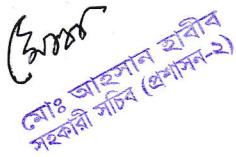 মোঃ আহসান হাবীব
সহকারী সচিব (প্রশাসন-২)